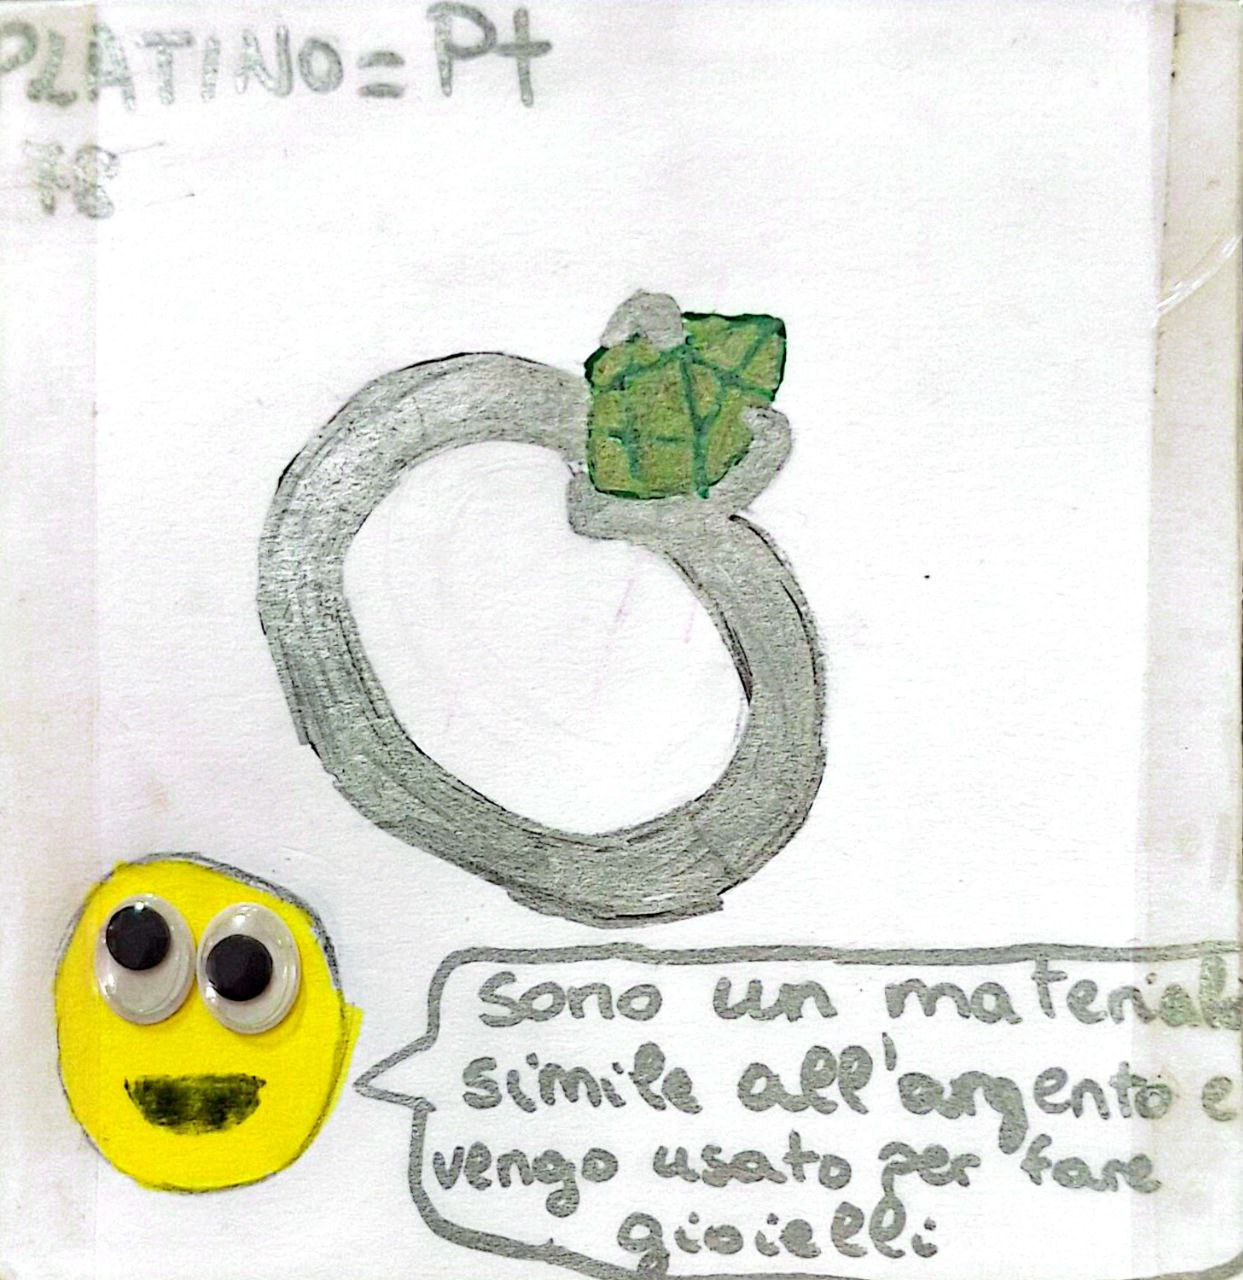 PLATINO = Pt
78
sono un materiale
simile all'argento e
vengo usato per fare
gioielli